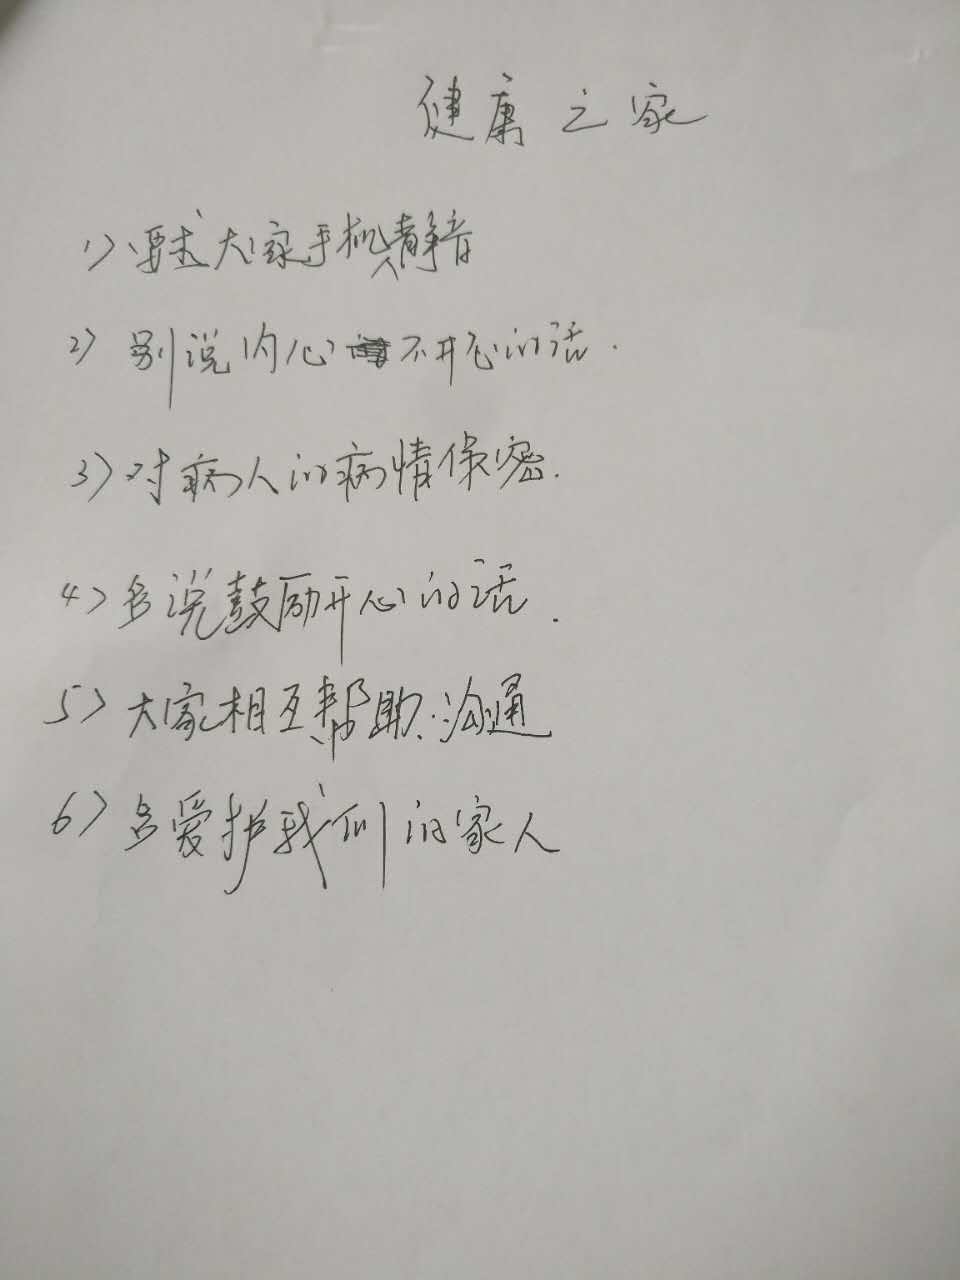 健康之家
1>、要求大家手机静音
2> 别说内心不开心的话.
3> 对病人的病情保密.
4> 多说鼓励开心的话.
5> 大家相互帮助.沟通
6> 多爱护我们的家人